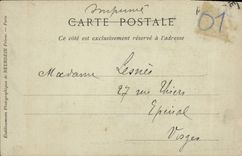 Imprimé
CARTE POSTALE
Ce côté est exclusivement réservé à l'adresse
01
Madame Lesnés
27 rue Thiers
Epinal
Vosges
Etablissements Photographiques de NEURDEIN Frères. — Paris